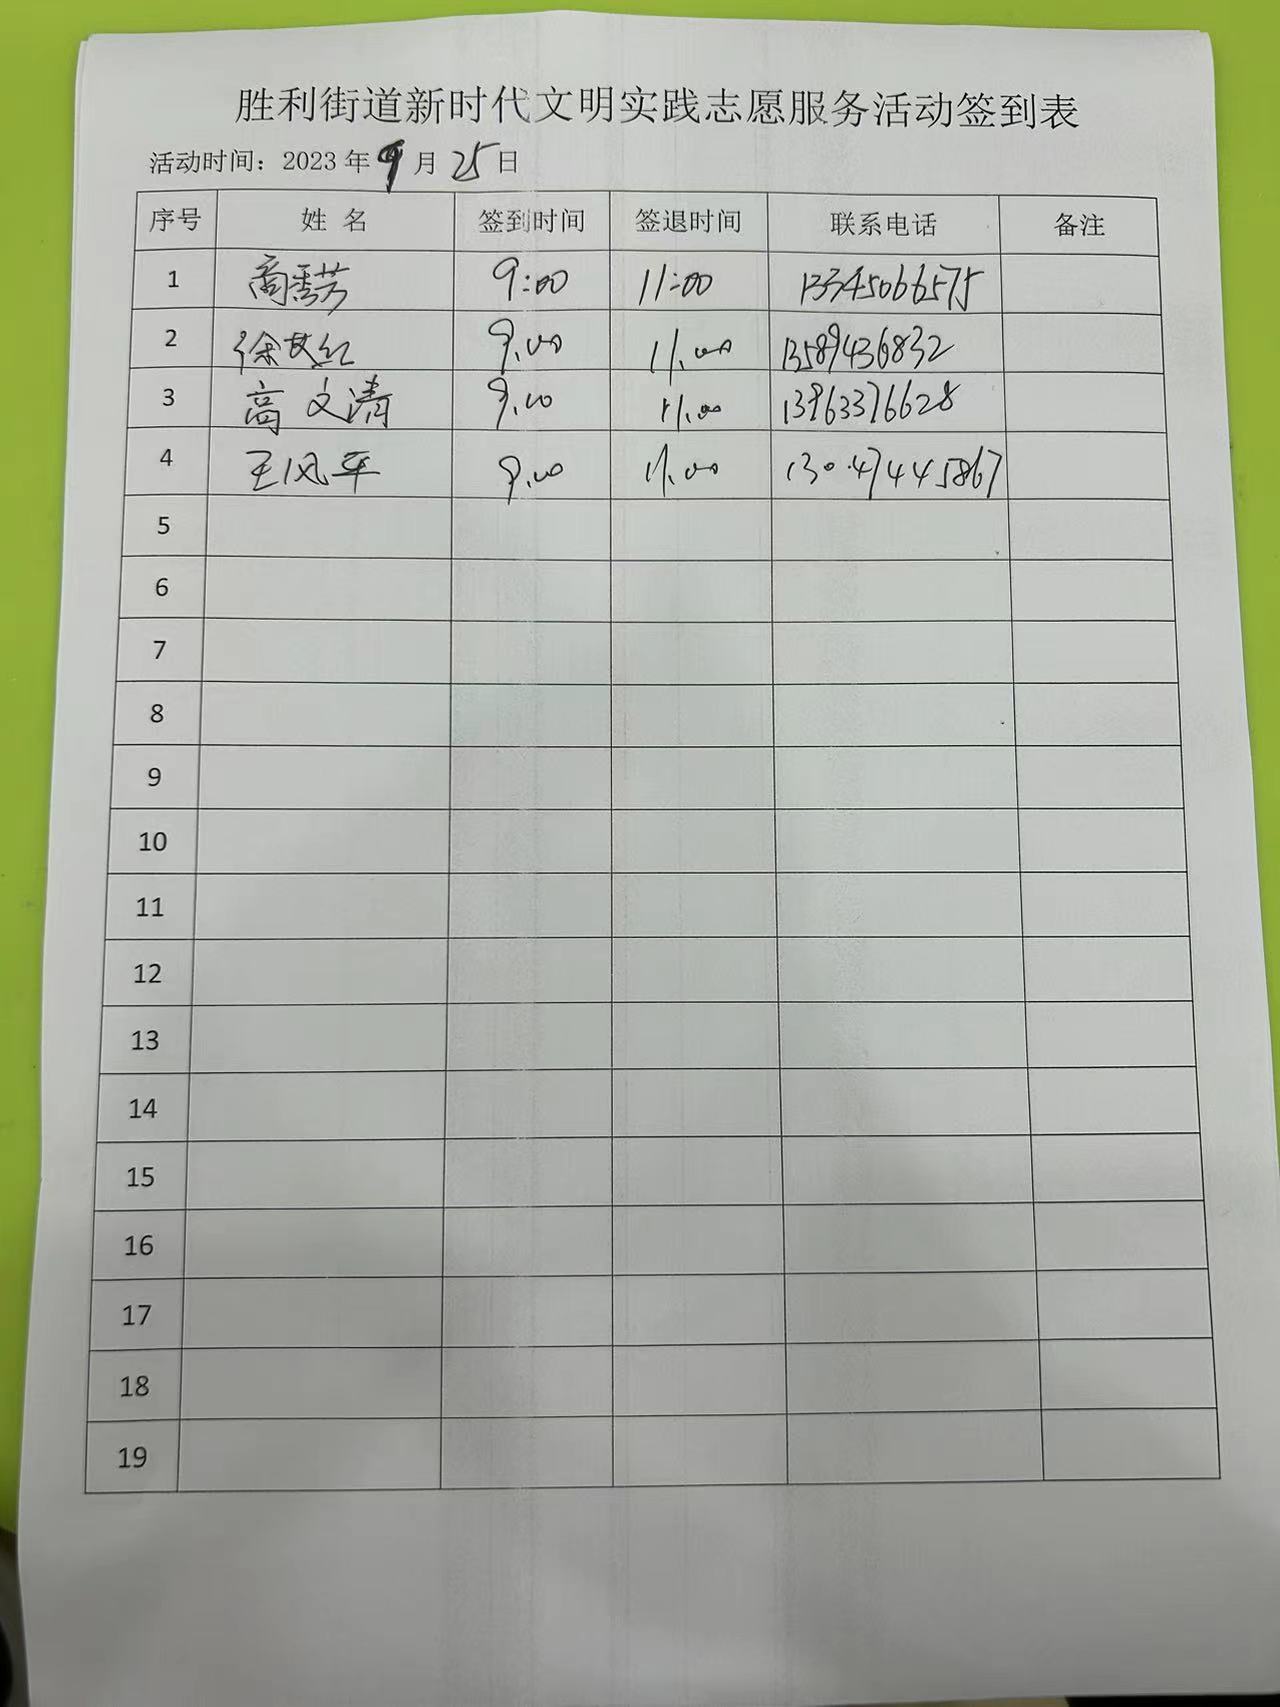 胜利街道新时代文明实践志愿服务活动签到表
活动时间：2023 年 9 月 25 日
序号 姓 名 签到时间 签退时间 联系电话 备注
1 9:00 11:00 13345066575
2 徐艾红 9.00 11.00 13589436832
3 高文清 9.00 11.00 13963376628
4 王风平 9.00 11.00 130.47445867
5
6
7
8
9
10
11
12
13
14
15
16
17
18
19